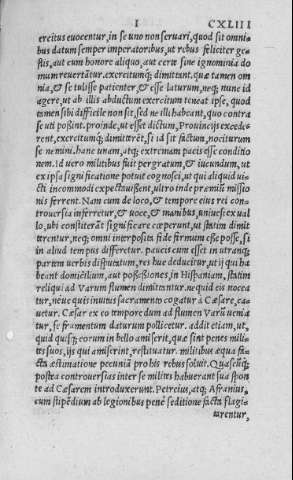 I CXLIII
ercitus euocentur, in se uno non seruari, quod sit omni=
bus datum semper imperatoribus, ut rebus feliciter ge=
stis, aut cum honore aliquo, aut certe sine ignominia do
mum reuertãtur. exercitumq́; dimittant. quæ tamen om
nia, & se tulisse patienter, & esse laturum, neq; nunc id
agere, ut ab illis abductum exercitum teneat ipse, quod
tamen sibi difficile non sit, sed ne illi habeant, quo contra
se uti possint. proinde, ut esset dictum, Prouincijs excede=
rent, exercitumq́; dimitterẽt, si id sit factum, nociturum
se nemini. hanc unam, atq; extremam pacis esse conditio
nem. Id uero militibus fuit pergratum, & iucundum, ut
ex ipsa significatione potuit cognosci, ut qui aliquid ui=
cti incommodi expectauissent, ultro inde præmiũ missio
nis ferrent. Nam cum de loco, & tempore eius rei con=
trouersia inferretur, & uoce, & manibus, uniuersi ex ual
lo, ubi constiterãt significare cœperunt, ut statim dimit
terentur, neq; omni interposita fide firmum esse posse, si
in aliud tempus differetur. paucis cum esset in utranq;
partem uerbis disputatum, res huc deducitur, ut ij qui ha
beant domicilium, aut possessiones, in Hispaniam, statim
reliqui ad Varum flumen dimittantur. ne quid eis nocea
tur, neue quis inuitus sacramento cogatur à Cæsare, ca=
uetur. Cæsar ex eo tempore dum ad flumen Varũ uenia
tur, se frumentum daturum pollicetur. addit etiam, ut,
quid quisq; eorum in bello amiserit, quæ sint penes mili=
tes suos, ijs qui amiserint, restituatur. militibus æqua fa=
cta æstimatione pecuniã pro his rebus soluit. Quascũq;
postea controuersias inter se milites habuerunt sua spon
te ad Cæsarem introduxerunt. Petreius, atq; Afranius,
cum stipẽdium ab legionibus penè seditione facta flagi=
tarentur,